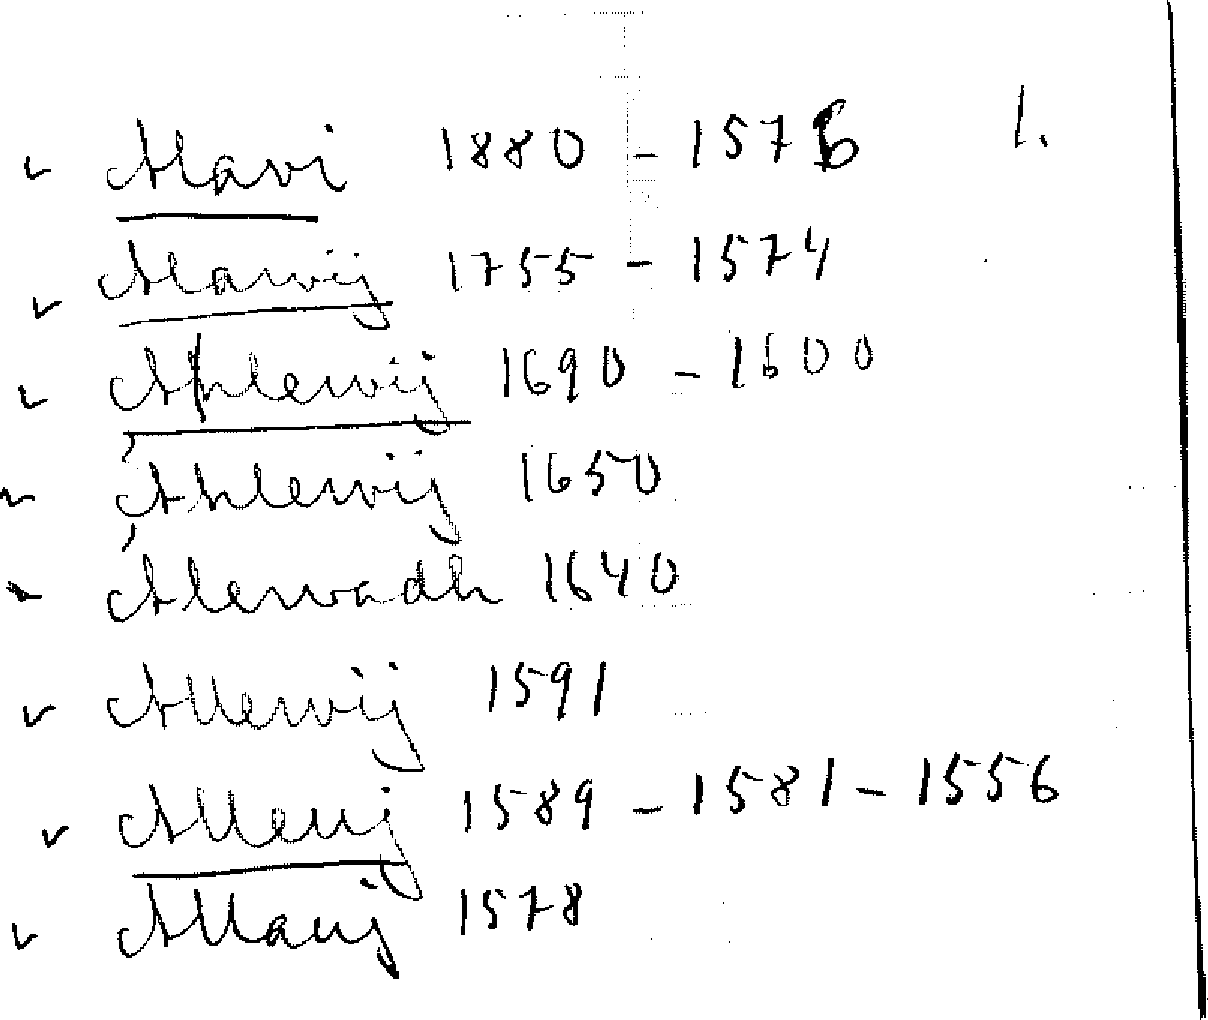 1.
✓ Alavi 1880 - 1576
✓ Alawij 1755 - 1574
✓ Ahlewij 1690 - 1600
✓ Ahlewij 1650
Alewadh 1640
✓ Allewij 1591
✓ Alleuj 1589 - 1581 - 1556
✓ Allauj 1578